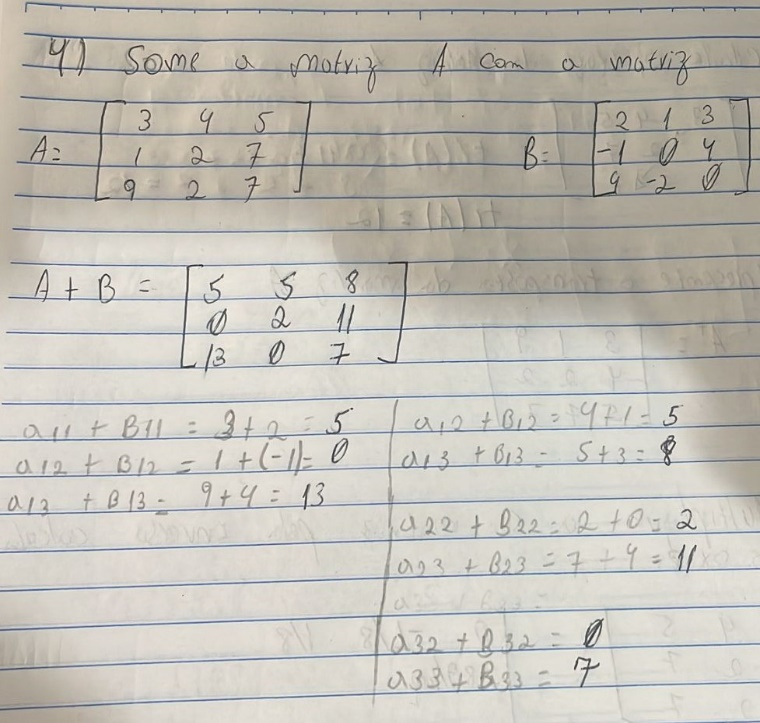 4) Some a matriz A com a matriz
A= [3 4 5
1 2 7
9 2 7]
B= [2 1 3
-1 0 4
4 -2 0]
A + B = [5 5 8
0 2 11
13 0 7]
a11 + B11 = 3+2 = 5
a12 + B12 = 1+(-1)= 0
a13 + B13 = 9+4 = 13
a12 + B12 = 4+1 = 5
a13 + B13 = 5+3 = 8
a22 + B22 = 2+0 = 2
a23 + B23 = 7+4 = 11
a32 + B32 = 0
a33 + B33 = 7